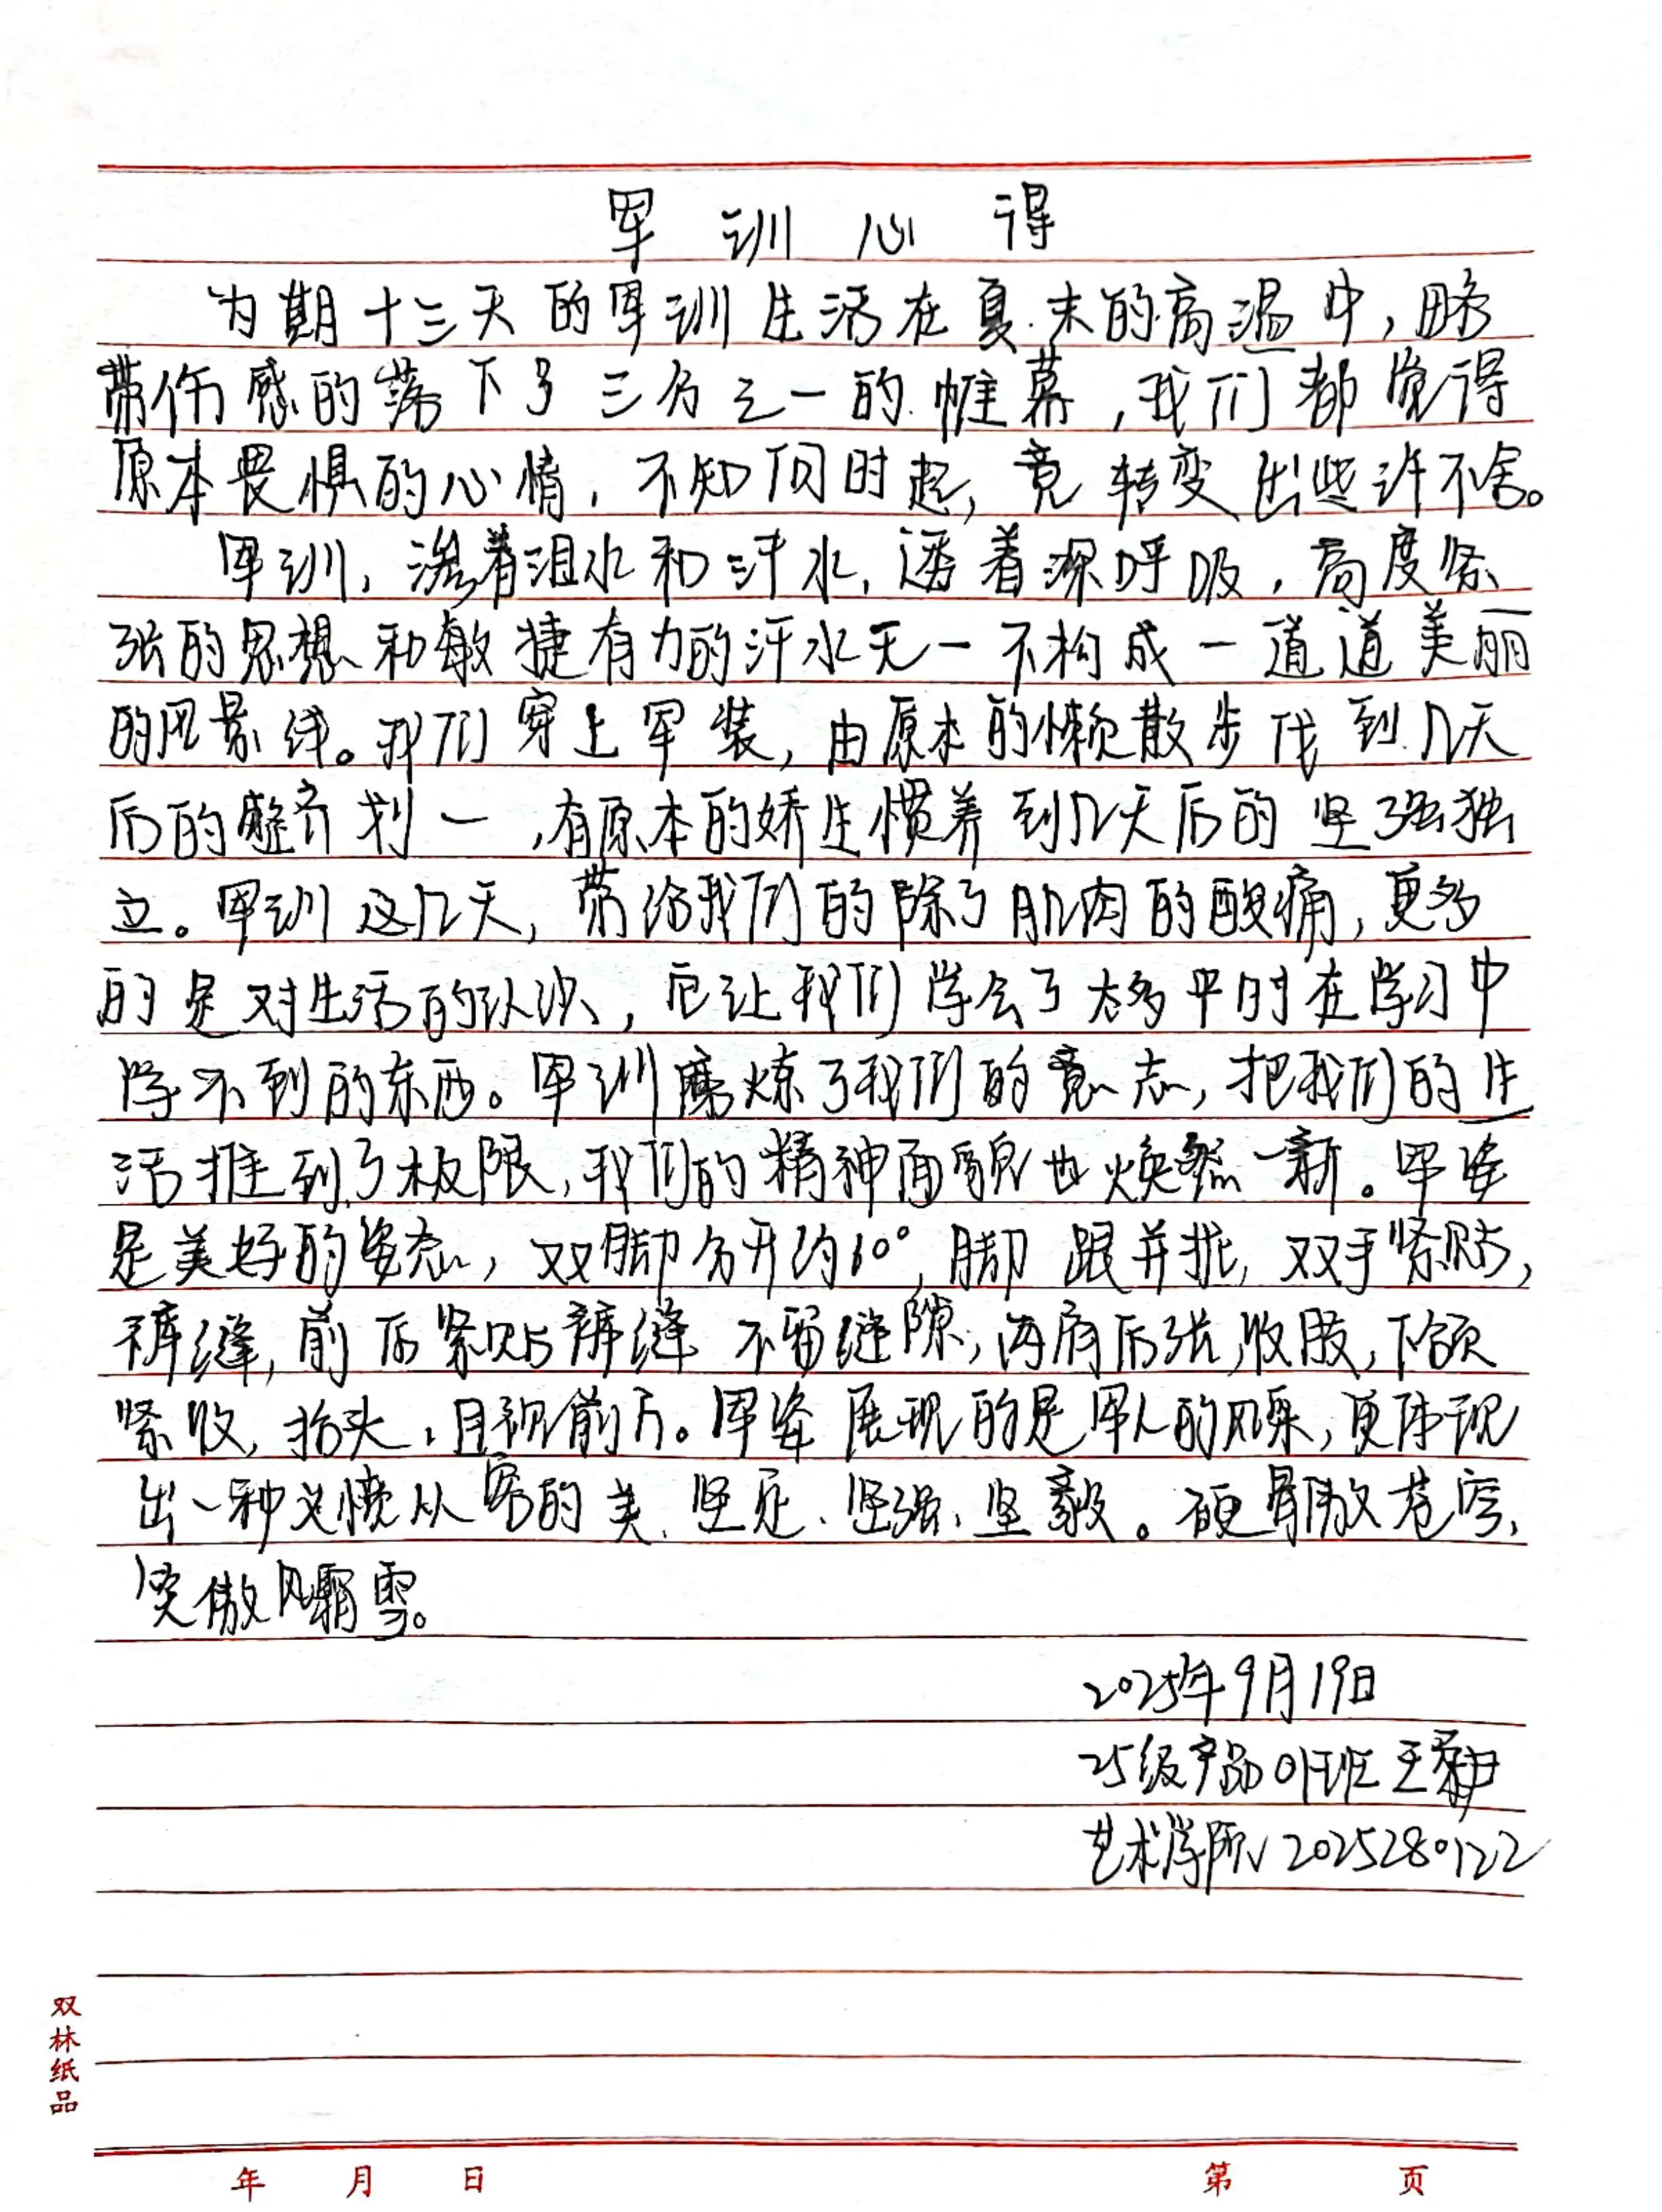 军训心得
为期十三天的军训生活在夏末的高温中，略
带伤感的落下了三分之一的帷幕，我们都觉得
原本畏惧的心情，不知何时起，竟转变出些许不舍。
军训，渗着泪水和汗水，透着深呼吸，高度紧
张的思想和敏捷有力的汗水无一不构成一道道美丽
的风景线。我们穿上军装，由原本的懒散步伐到几天
后的整齐划一，有原本的娇生惯养到几天后的坚强独
立。军训这几天，带给我们的除了肌肉的酸痛，更多
的是对生活的认识，它让我们学会了太多平时在学习中
学不到的东西。军训磨炼了我们的意志，把我们的生
活推到了极限，我们的精神面貌也焕然一新。军姿
是美好的姿态，双脚分开约60°，脚跟并拢，双手紧贴，
裤缝，前后紧贴裤缝不留缝隙，两肩后张，收腹，下颌
紧收，抬头，目视前方。军姿展现的是军人的风采，更体现
出一种义愤从容的美、坚定、坚强、坚毅。硬骨傲苍穹，
笑傲风霜雪。
2025年9月19日
25级产品01班 王
艺术学院 2025280122
双林纸品
年 月 日 第 页